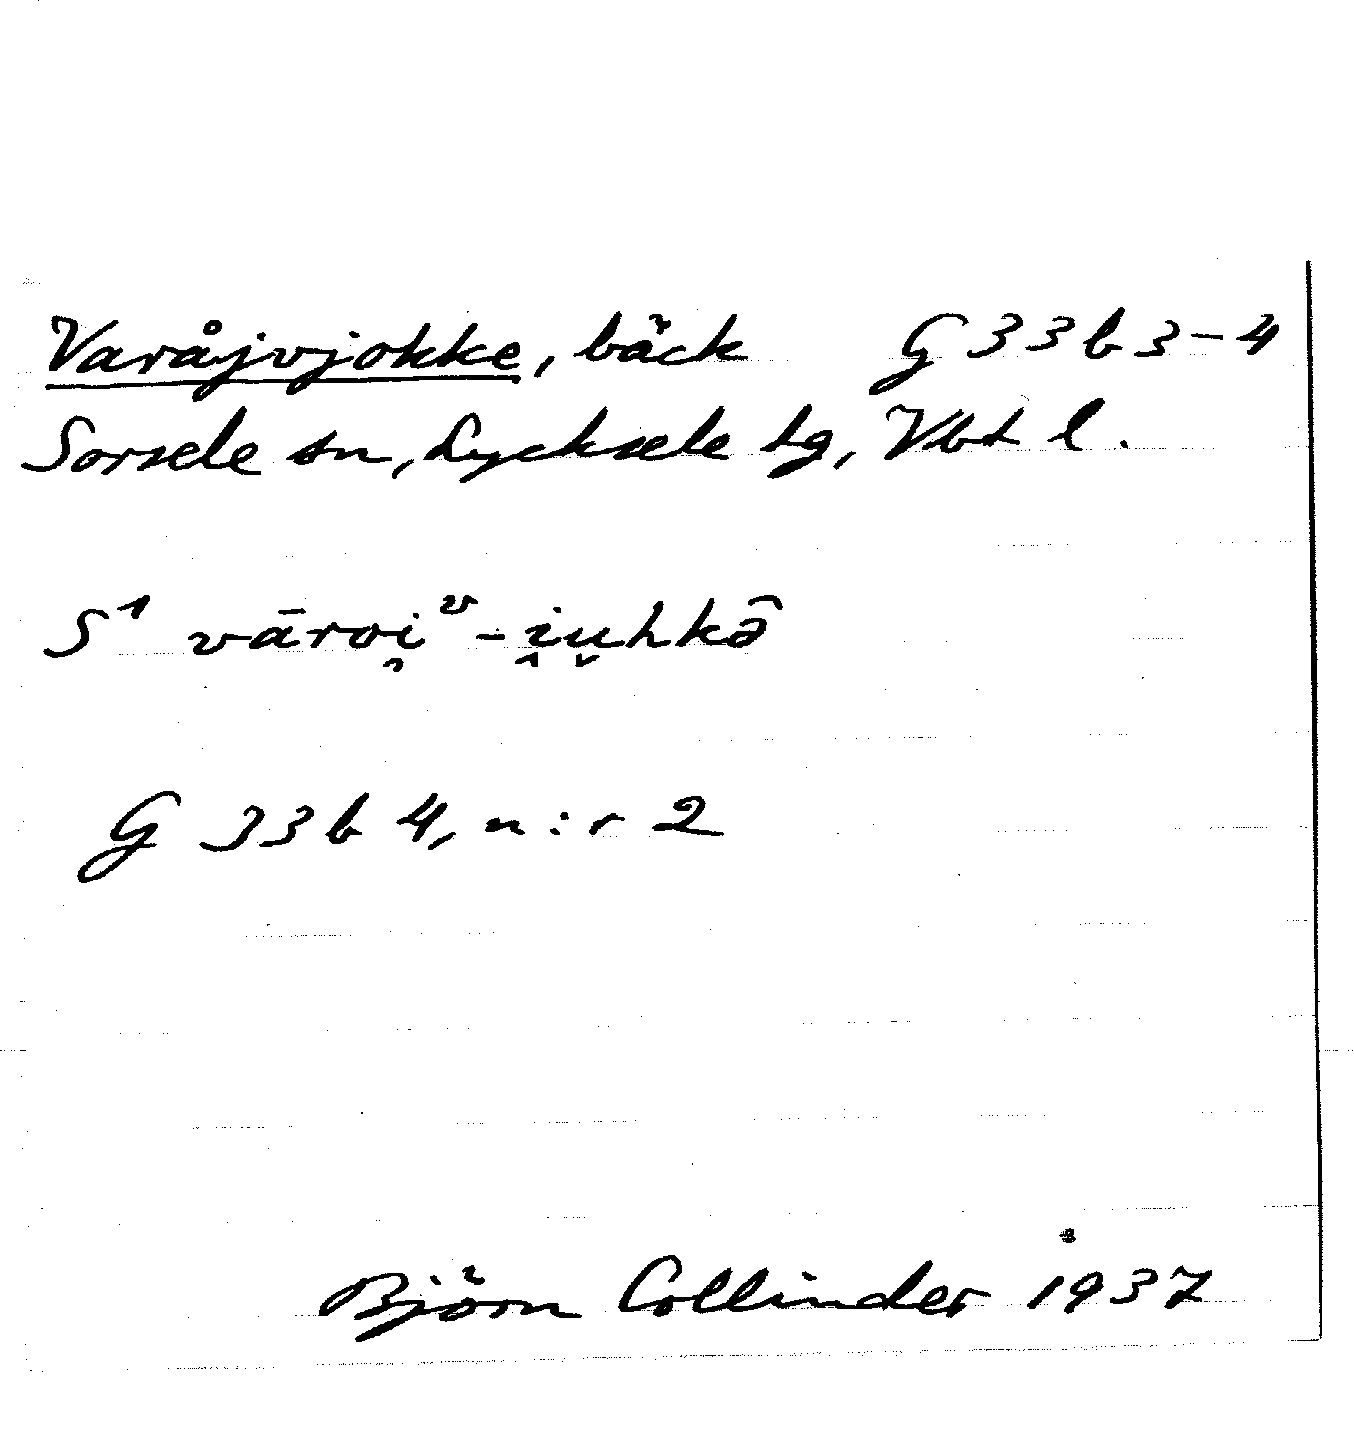 Varåjvjokke, bäck G 33 b 3-4
Sorsele sn, Lycksele lg, Vbt l.
S¹ vāroi̯ᵛ-i̯u̯hkə̂
G 33 b 4, n:r 2
Björn Collinder 1937